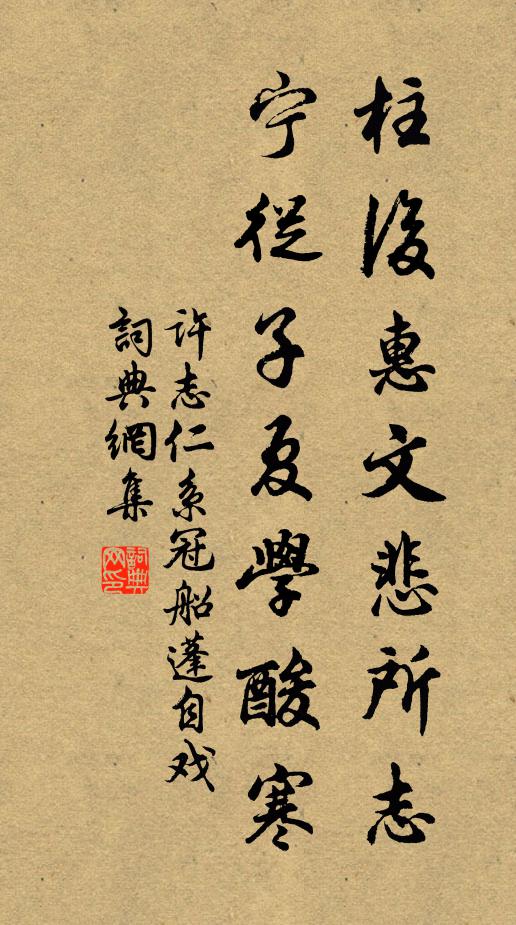 柱後惠文悲所志
宁從子夏學酸寒
許志仁系冠船蓬自戏
詞典網集
詞典网印